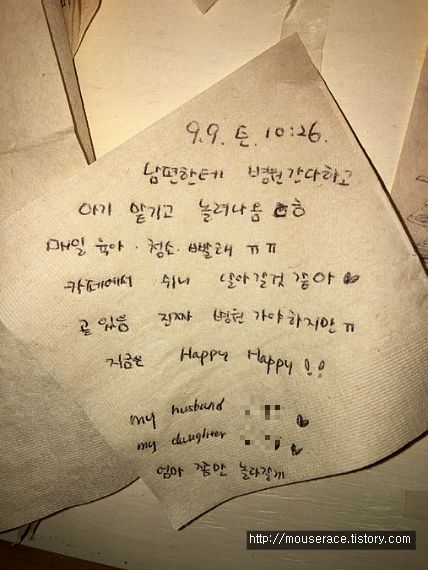 9.9. 토. 10:26.
남편한테 병원간다하고
아기 맡기고 놀러나옴 ㅎ
매일 육아·청소·빨래 ㅠㅠ
카페에서 쉬니 날아갈것 같아 ♥
곧 있음 진짜 병원 가야하지만 ㅠ
지금은 Happy Happy !!
my husband ♥
my daughter ♥
엄마 쫌만 놀다갈게
http://mouserace.tistory.com